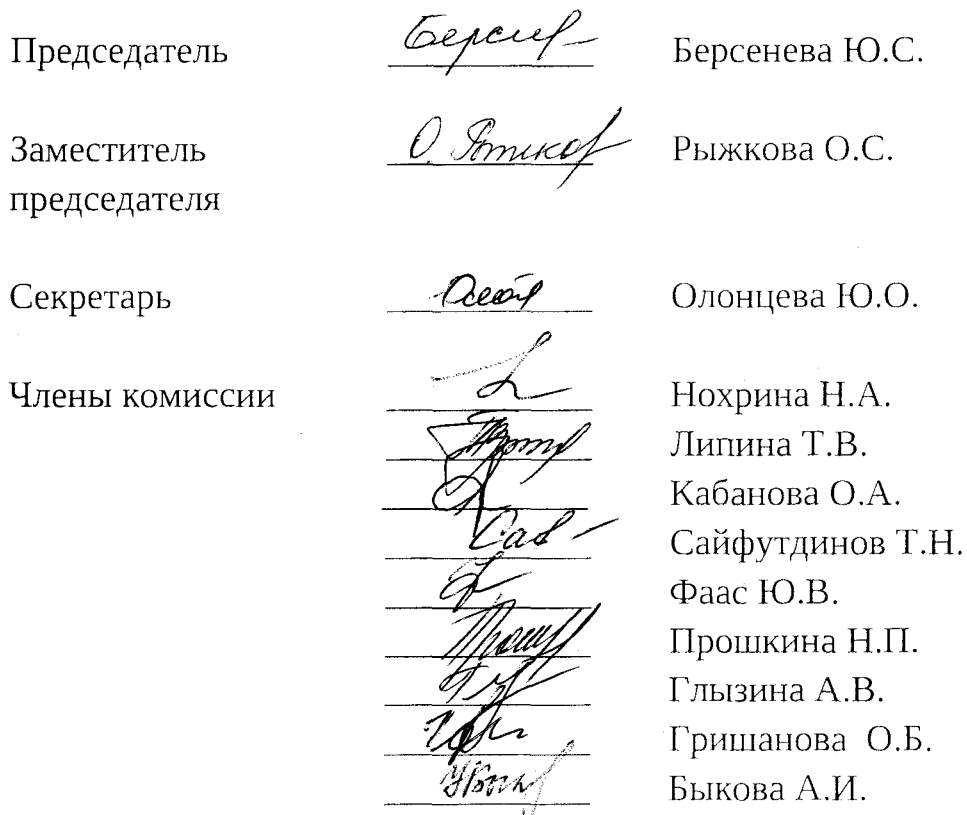 Председатель Берсенева Ю.С.
Заместитель Рыжкова О.С.
председателя
Секретарь Олонцева Ю.О.
Члены комиссии Нохрина Н.А.
Липина Т.В.
Кабанова О.А.
Сайфутдинов Т.Н.
Фаас Ю.В.
Прошкина Н.П.
Глызина А.В.
Гришанова О.Б.
Быкова А.И.